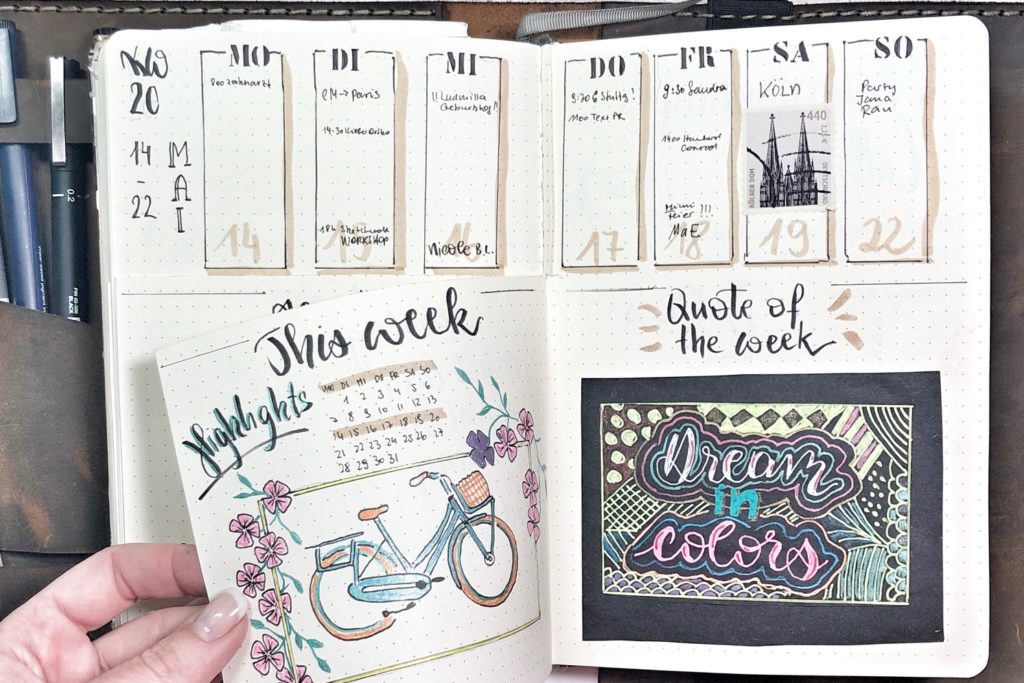 KW
20
14
-
22
MAI
MO
800 Zahnarzt
14
DI
14:30 Kiefer Ortho
184 Sketchnote
WORKSHOP
15
MI
!! Ludmilla
Geburtstag!
Nicole B.L.
16
DO
1100 Text PR
17
FR
9:30 Sandra
1400
Conrad
Mimi
feier !!!
MaE
18
SA
KÖLN
440
KÖLNER DOM
19
SO
Party
Jona
Rau
22
This week
Highlights
MO DI MI DO FR SA SO
1 2 3 4 5 6
7 8 9 10 11 12 13
14 15 16 17 18 19 20
21 22 23 24 25 26 27
28 29 30 31
Quote of
the week
Dream
in
colors
0.2